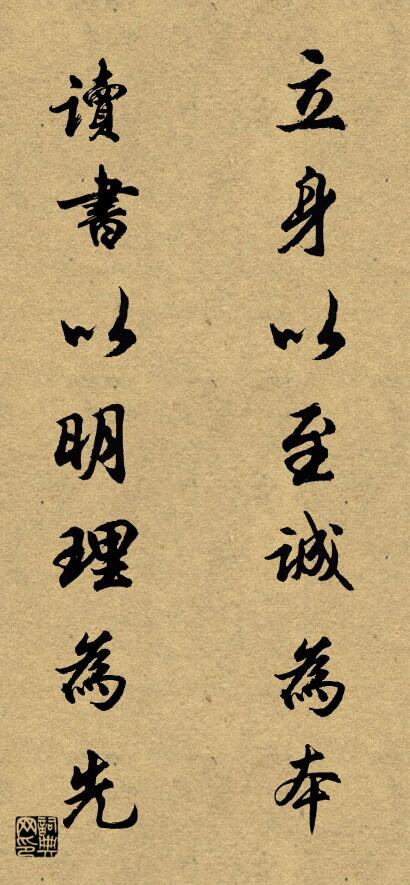 立身以至誠為本
讀書以明理為先
詞典网印